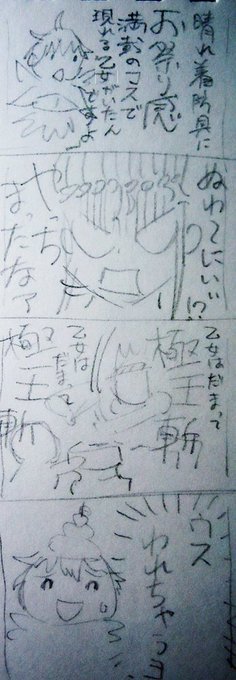 晴れ着防具に
お祭り感
満載のコスで
現れる乙女がいたん
ですよ
ぬわァにいい!?
やっち
まったなァ
乙女はだまって
極王斬
乙女は
だまって
極王斬
ウス
われちゃうヨ